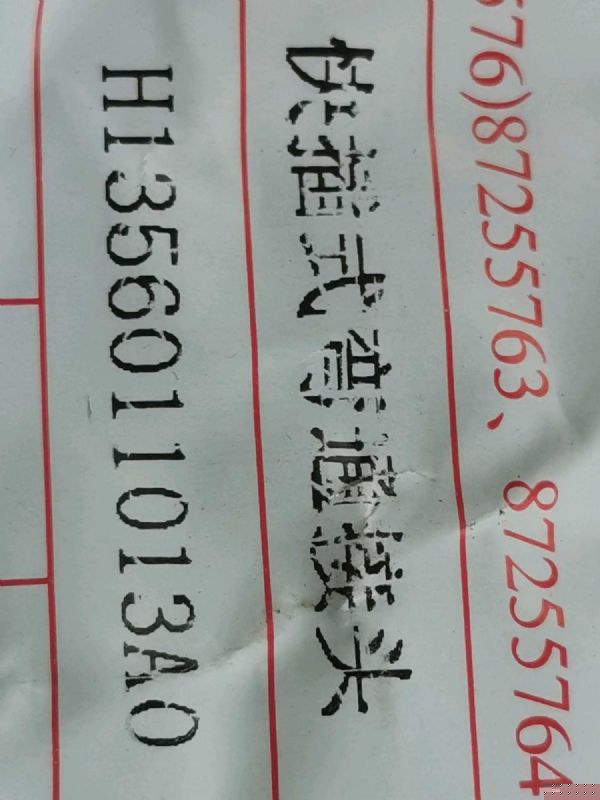 576)87255763、 87255764
快插式弯通接头
H1356011013A0